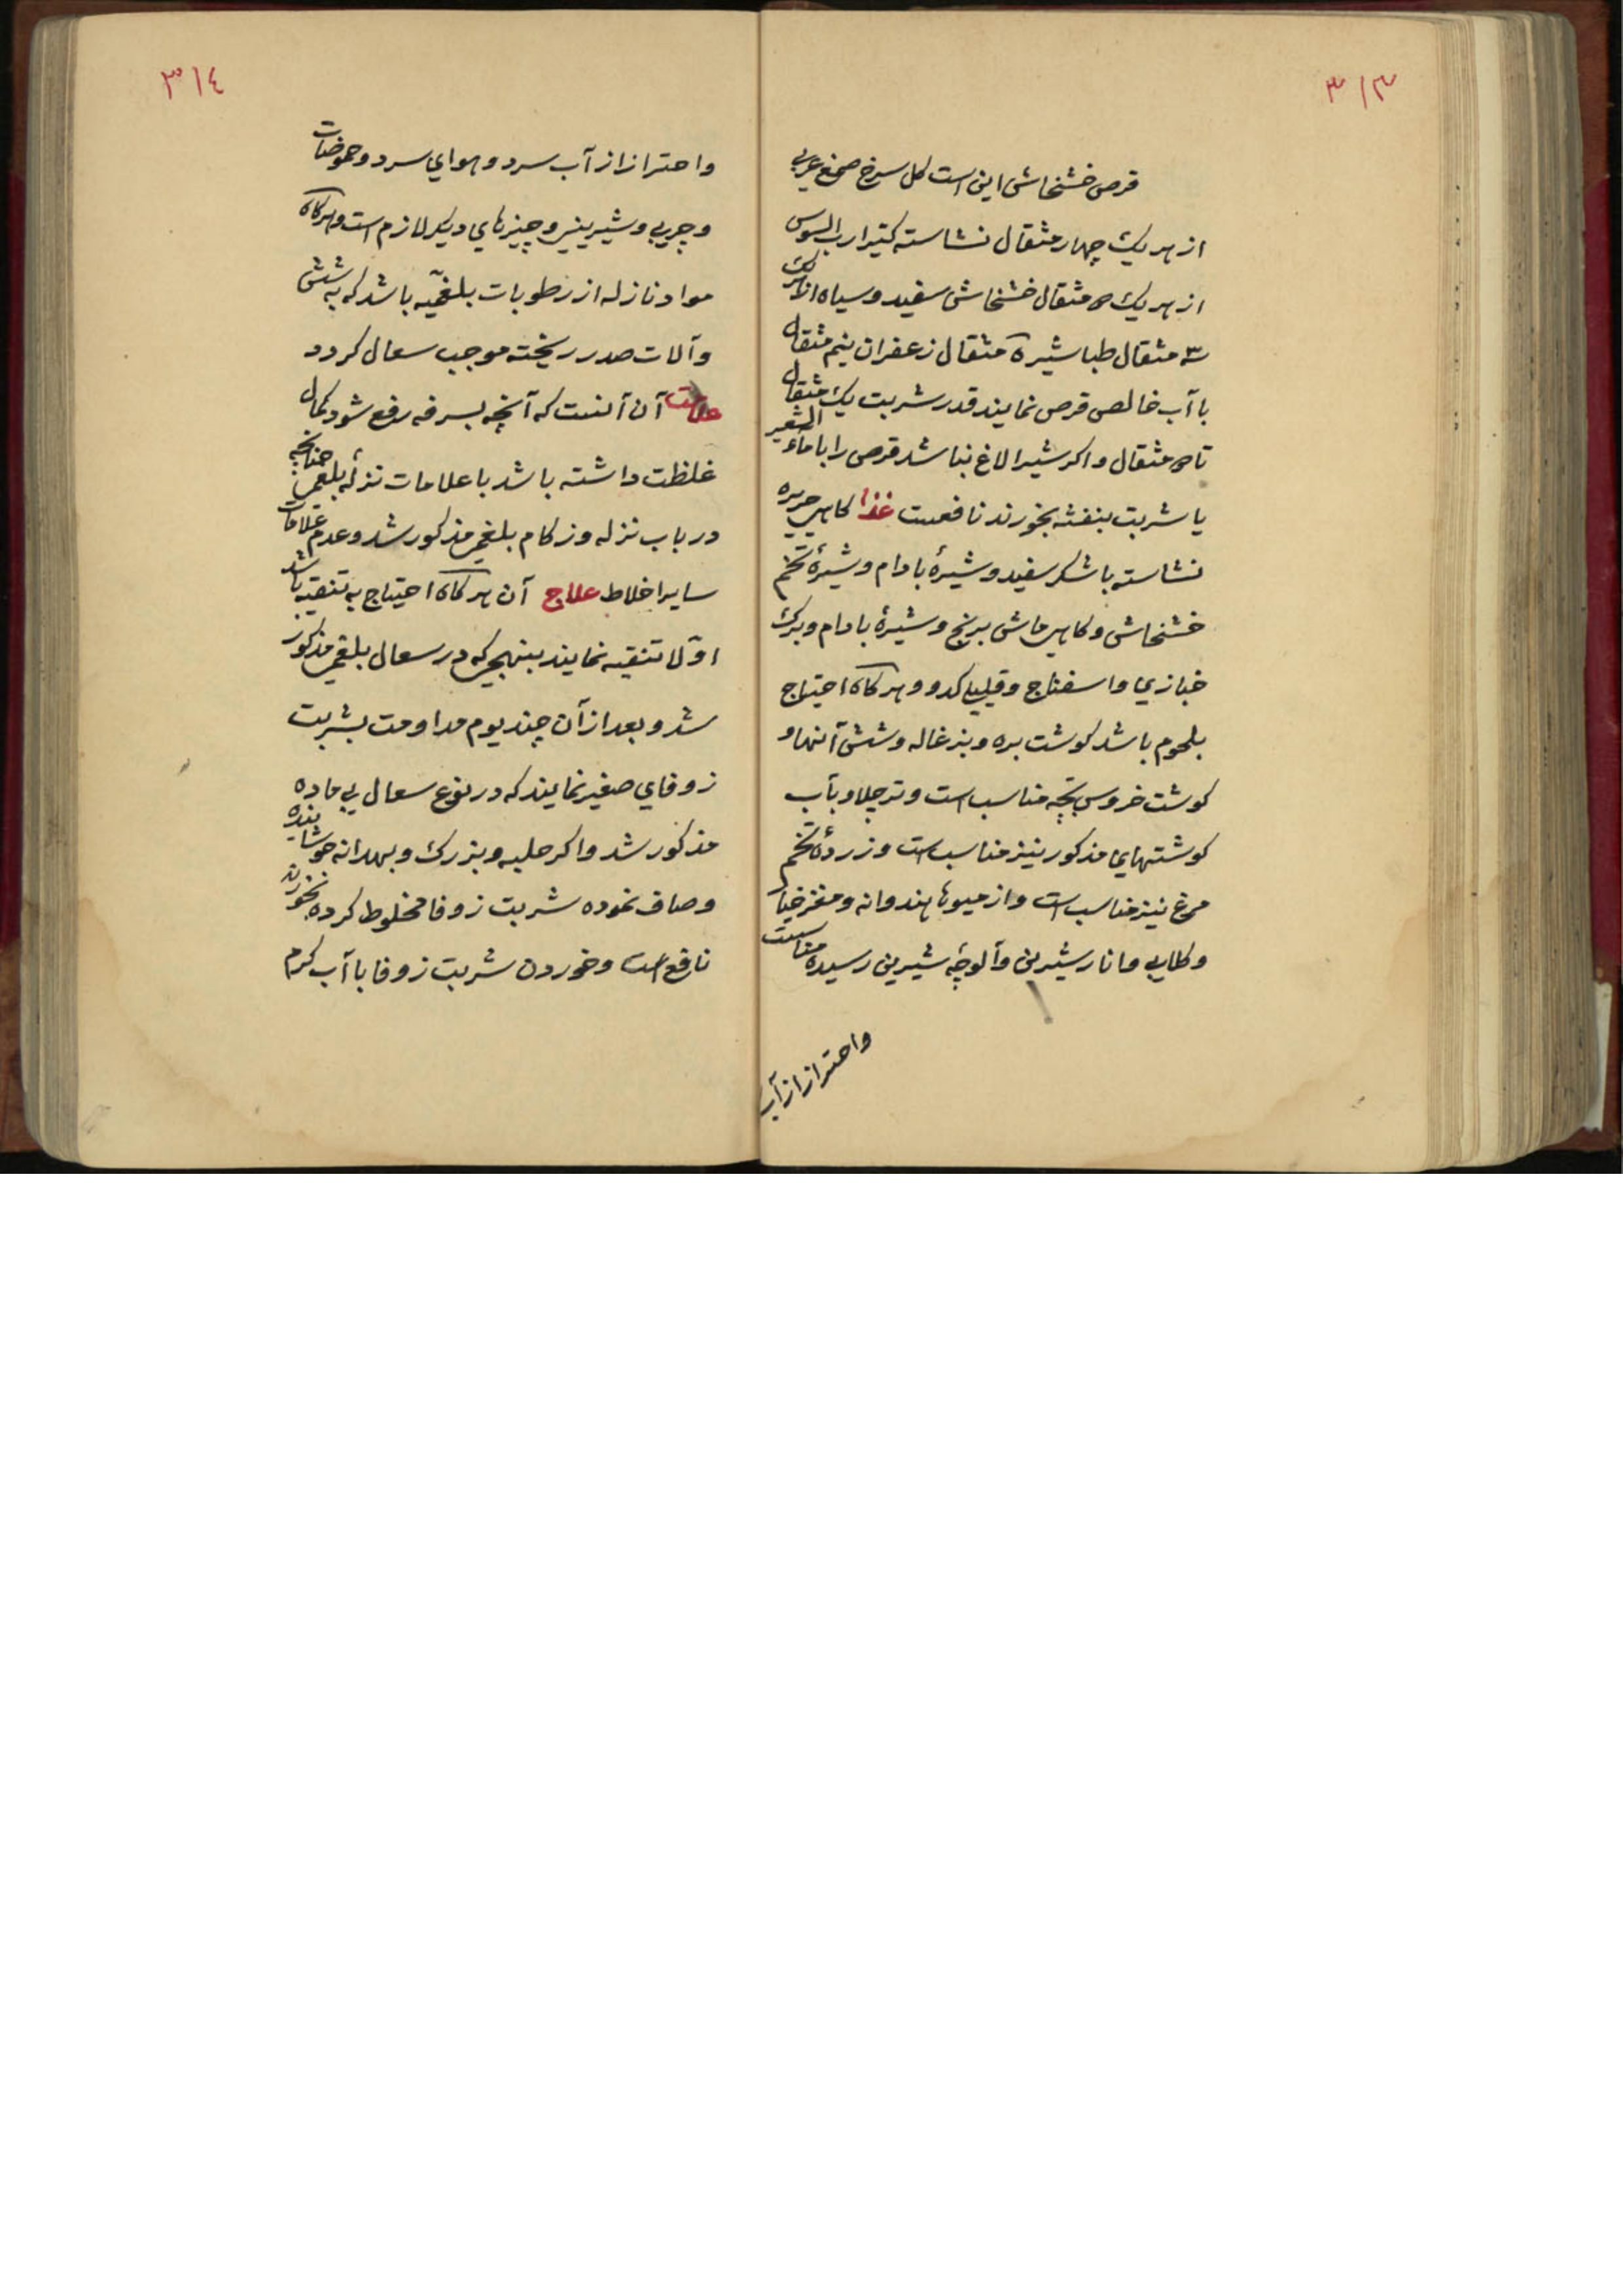 ۳۱۳
قرص خشخاش این است کل سرخ صمغ عربی
از هر یک چهار مثقال نشاسته کتیرا رب السوس
از هر یک مثقال خشخاش سفید و سیاه از هر یک
سه مثقال طباشیر مثقال زعفران نیم مثقال
با آب خالص قرص نمایند قدر شربت یک مثقال
تا مثقال و اکر شیر الاغ نباشد قرص را با ماء الشعیر
یا شربت بنفشه بخورند نافعست غذا کاهی حریره
نشاسته با شکر سفید و شیرهٔ بادام و شیرهٔ تخم
خشخاش و کاهی ماش برنج و شیرهٔ بادام و برک
خبازی و اسفناج و قلیه کدو و هر کاه احتیاج
بلحوم باشد کوشت بره و بزغاله و شش آنها و
کوشت خروس بچه مناسب است و تر چلاو بآب
کوشتهای مذکور نیز مناسب است و زردهٔ تخم
مرغ نیز مناسب است و از میوها هندوانه و مغز خیار
و طالبی و انار شیرین و آلوچهٔ شیرین رسیده مناسبست
واحتراز از آب
۳۱٤
واحتراز از آب سرد و هوای سرد و حموضات
و چربی و شیرینی و چیزهای دیکر لازم است و هر کاه
مواد نازله از رطوبات بلغمیه باشد که به شش
و آلات صدر ریخته موجب سعال کردد
علامت آن آنست که آنچه بسرفه رفع شود کمال
غلظت داشته باشد با علامات نزلهٔ بلغمی چنانچه
در باب نزله و زکام بلغمی مذکور شد و عدم علامات
سایر اخلاط علاج آن هر کاه احتیاج به تنقیه باشد
اوّلا تنقیه نمایند بنهجی که در سعال بلغمی مذکور
شد و بعد از آن چند یوم مداومت بشربت
زوفای صغیر نمایند که در نوع سعال بی ماده
مذکور شد و اکر حلبه و بزرک و بهدانه جوشانیده
و صاف نموده شربت زوفا مخلوط کرده بخورند
نافع است و خوردن شربت زوفا با آب کرم